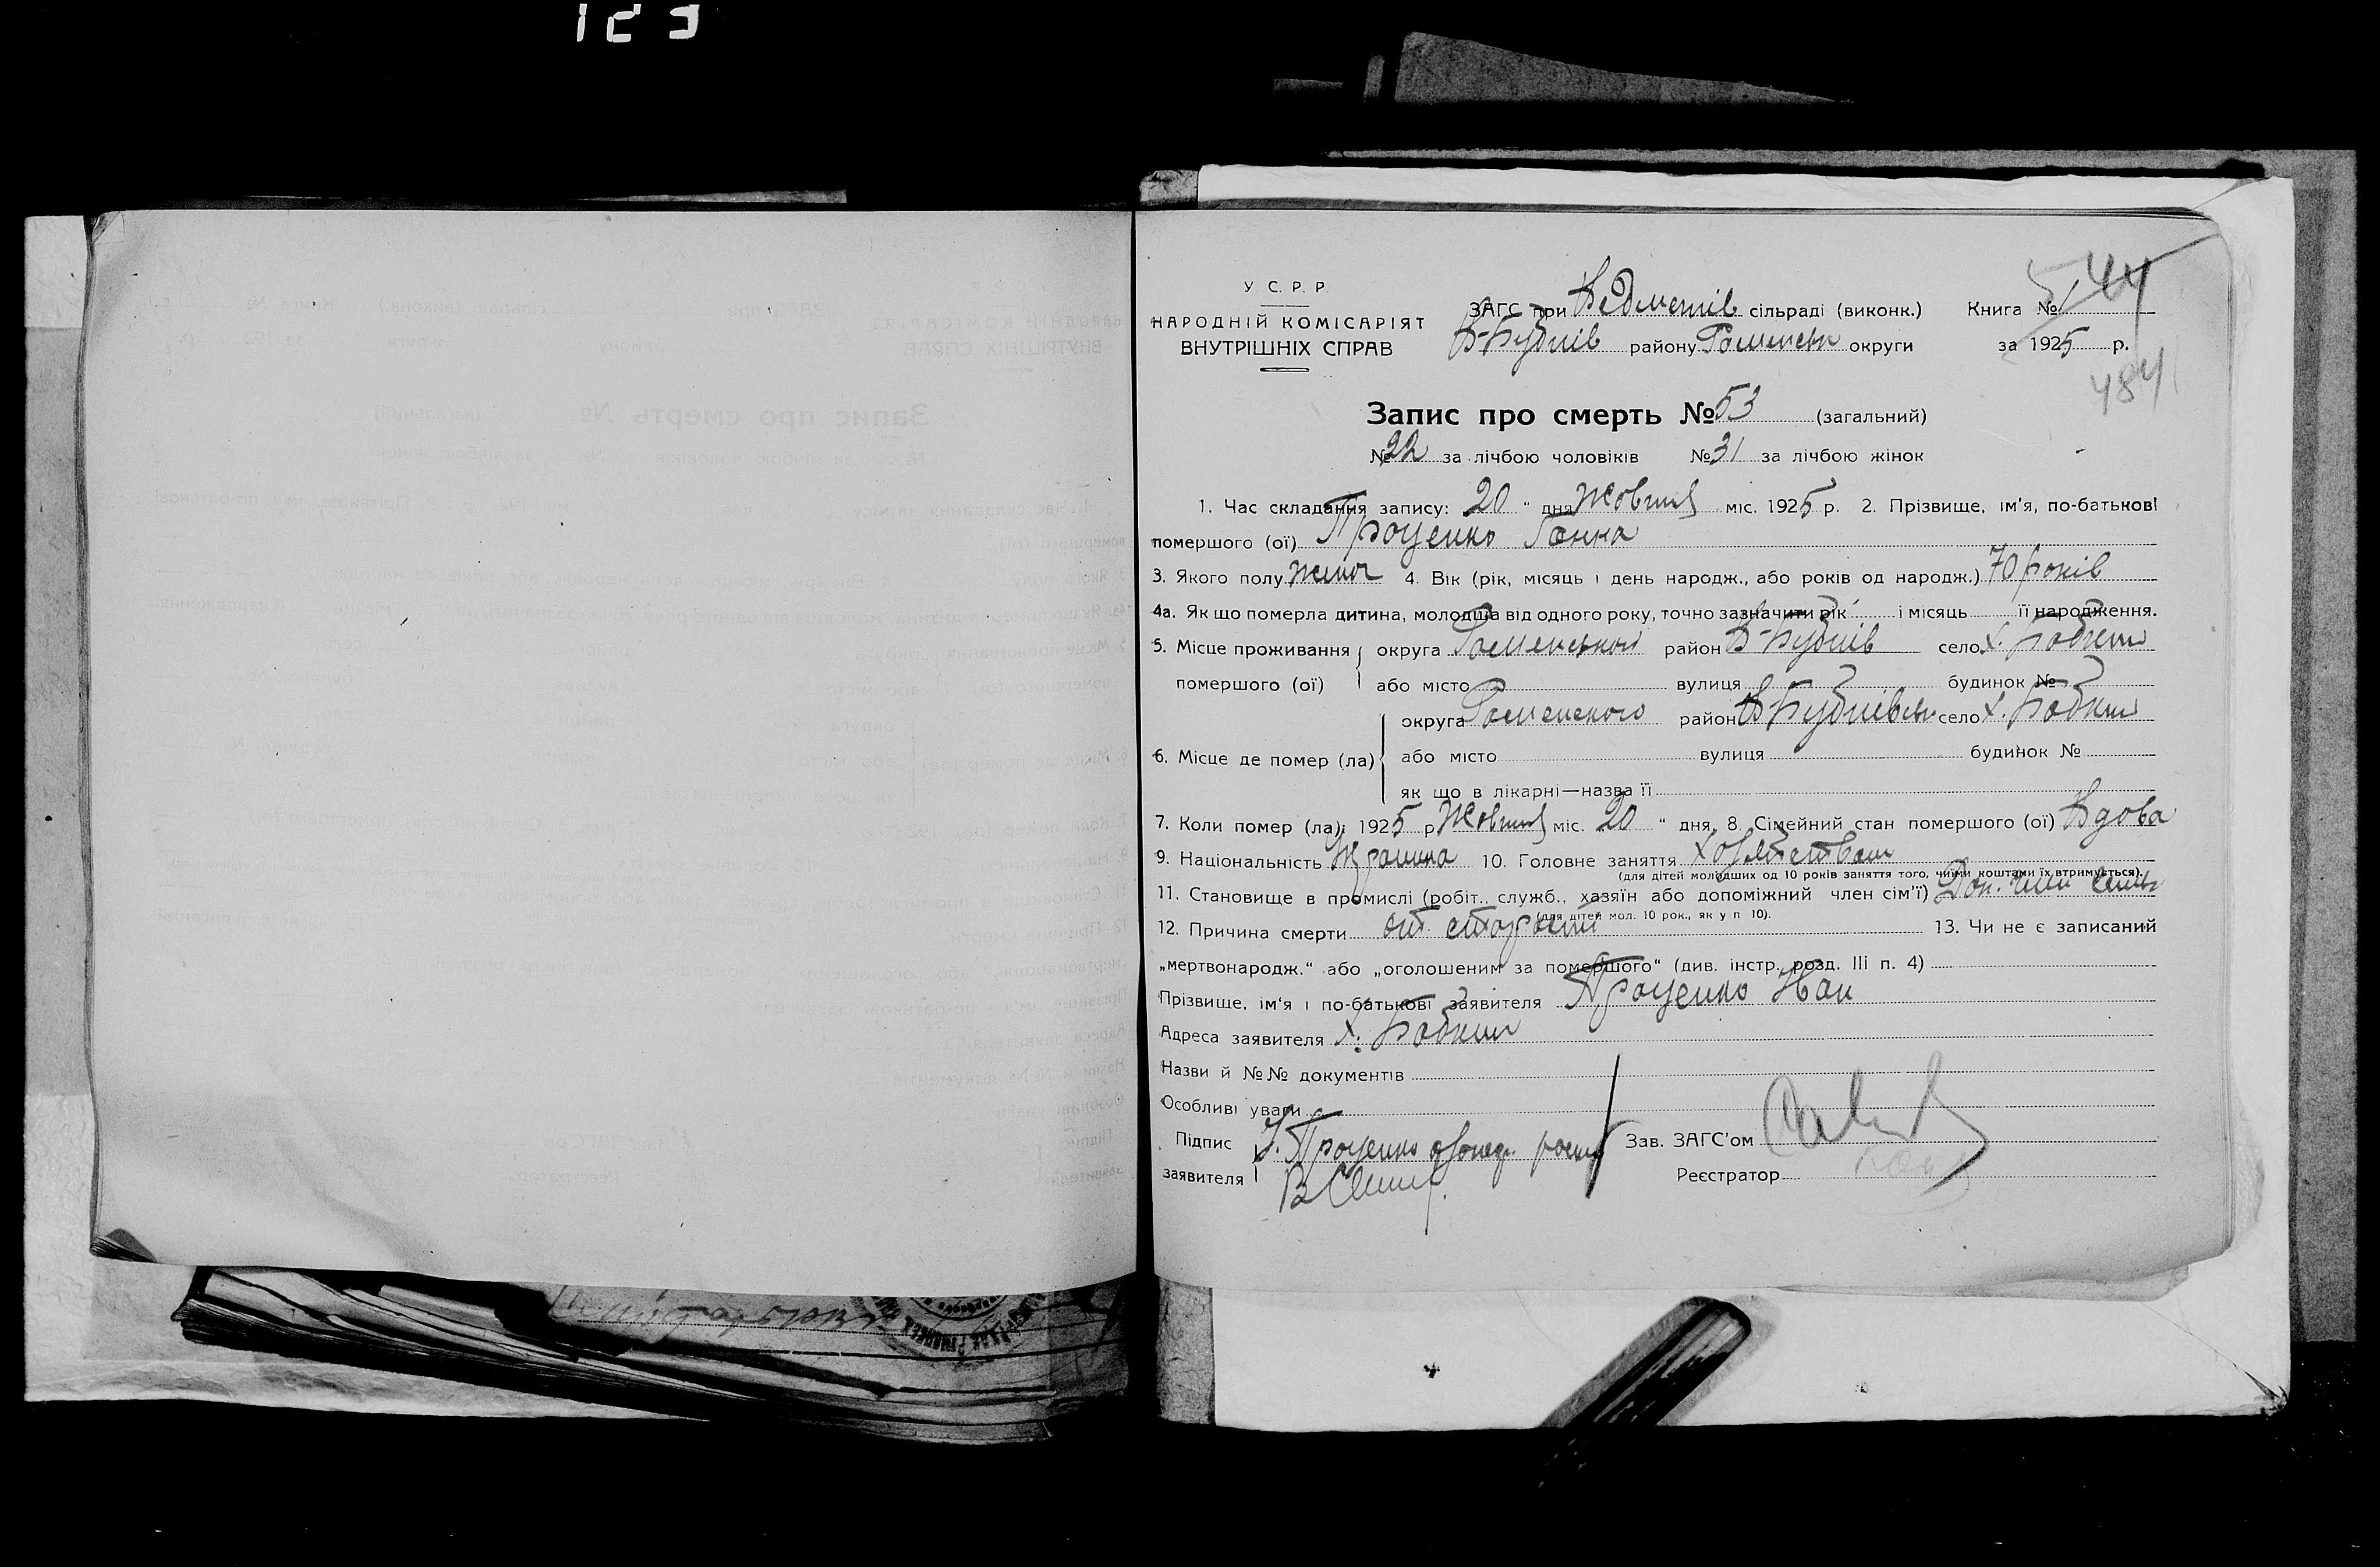 У С. Р. Р.
НАРОДНІЙ КОМІСАРІЯТ
ВНУТРІШНІХ СПРАВ
ЗАГС при Ведметів сільраді (виконк.)
В-Бубнів району Роменськ округи
Книга № 1
за 1925 р.
544
484
Запис про смерть № 53 (загальний)
№ 22 за лічбою чоловіків № 31 за лічбою жінок
1. Час складання запису: 20 " дня Жовтня міс. 1925 р. 2. Прізвище, ім'я, по-батькові
помершого (ої) Проценко Ганна
3. Якого полу жіноч 4. Вік (рік, місяць і день народж., або років од народж.) 70 років
4а. Як що померла дитина, молодша від одного року, точно зазначити рік і місяць її народження.
5. Місце проживання округа Роменської район В-Бубнів село х. Бобкин
помершого (ої) або місто вулиця будинок №
округа Роменского район В-Бубнівськ село х. Бобкин
6. Місце де помер (ла) або місто вулиця будинок №
як що в лікарні—назва її
7. Коли помер (ла): 1925 р Жовтня міс. 20 " дня. 8. Сімейний стан помершого (ої) Вдова
9. Національність Украинка 10. Головне заняття
(для дітей молодших од 10 років заняття того, чиїми коштами їх втримується).
11. Становище в промислі (робіт., служб., хазяїн або допоміжний член сім'ї) Доп. член семьи
(для дітей мол. 10 рок., як у п 10).
12. Причина смерти от старости 13. Чи не є записаний
„мертвонародж." або „оголошеним за помершого" (див. інстр., розд. III п. 4)
Прізвище, ім'я і по-батькові заявителя Проценко Иван
Адреса заявителя х. Бобкин
Назви й №№ документів
Особливі уваги
Підпис Проценко
заявителя
Зав. ЗАГС'ом
Реєстратор